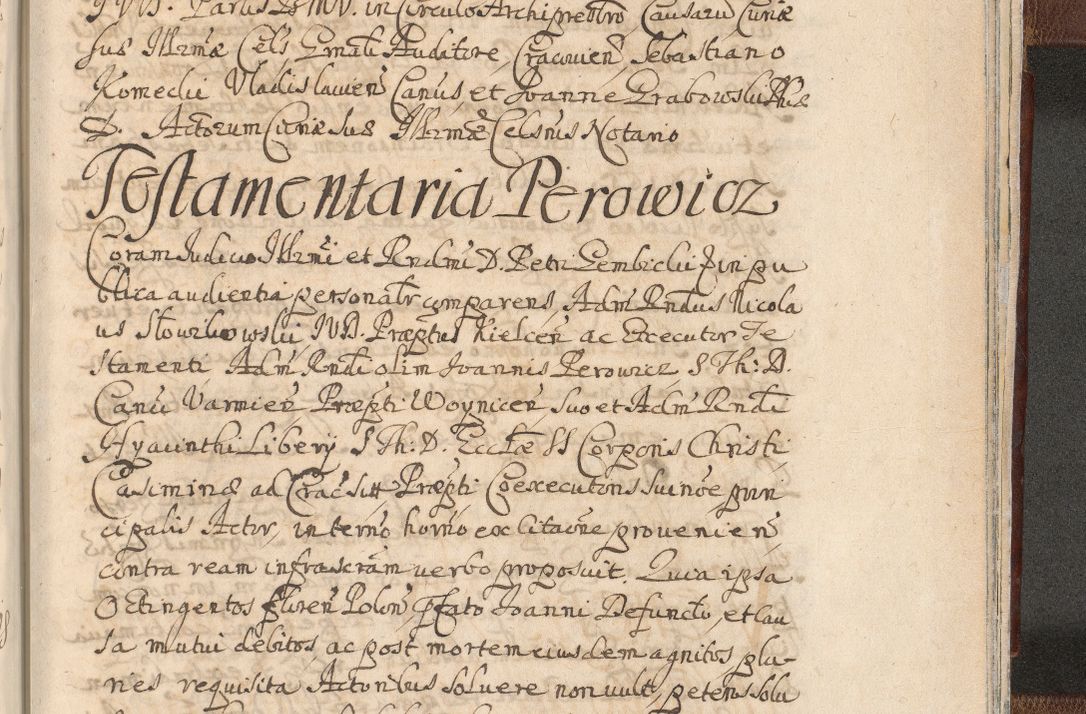 IVD. Parus de MV. in Circulo Archipresbro, Causaru Curiæ
suæ Illrmæ Cels. Gnali Auditore, Cracovien, Sebastiano
Komecki Vladislavien Canus et Joanne Grabowski Phiæ
D. Actorum Curiæ suæ Illrmæ Celsnis Notario
Testamentaria Perowicz
Coram Judicio Illrmi et Rndmi D. Petri Gembicki Epi in pu
blica audientia personalr comparens, Adm Rndus Nicola
us Slowikowski IVD. Præptus Kielcen ac Executor Te
stamenti Adm Rndi olim Joannis Perowicz S Th: D.
Canci Varmien Præpti Woynicen, suo et Adm Rndi
Hyacinthi Liberij S Th: D. Ecclæ SS Corporis Christi
Casimiriæ ad Crac sitt Præpti Coexecutoris sui noe prin
cipalis Actor, in termo horno ex citaone provenien
contra ream infrascram verbo proposuit. Quia ipsa
Octingentos floren Polon pfato Joanni Defuncto, et cau
sa mutui debitos, ac post mortem eiusdem agnitos plu-
ries requisita Actoribus soluere non vult, petens solu